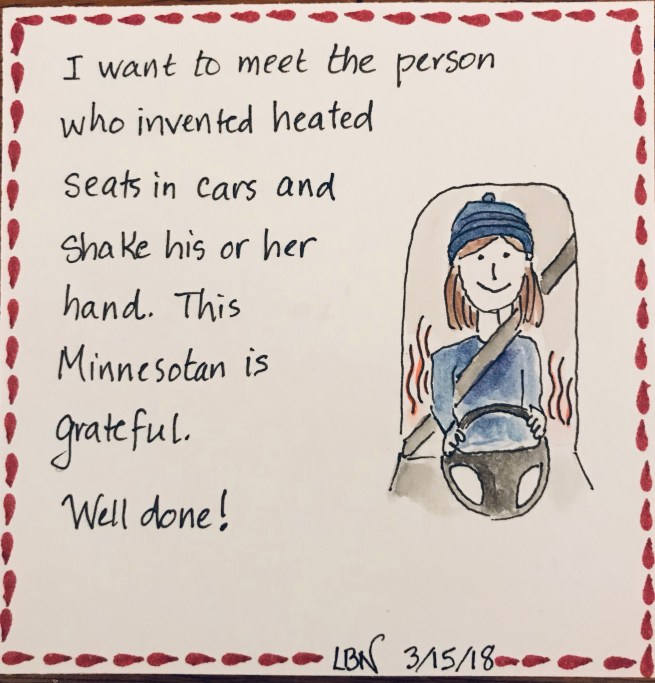 I want to meet the person
who invented heated
seats in cars and
shake his or her
hand. This
Minnesotan is
grateful.
Well done!
LBN 3/15/18